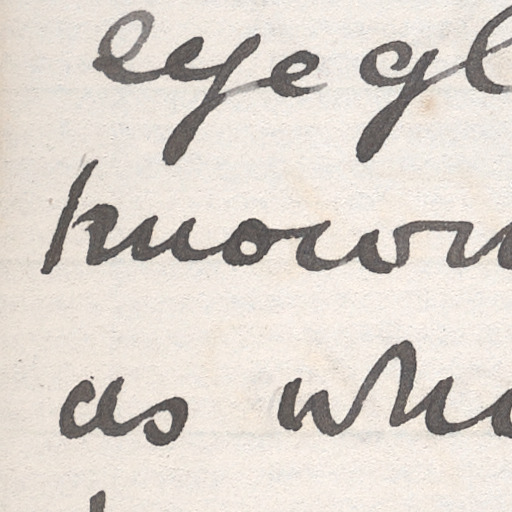 eye gl
known
as who